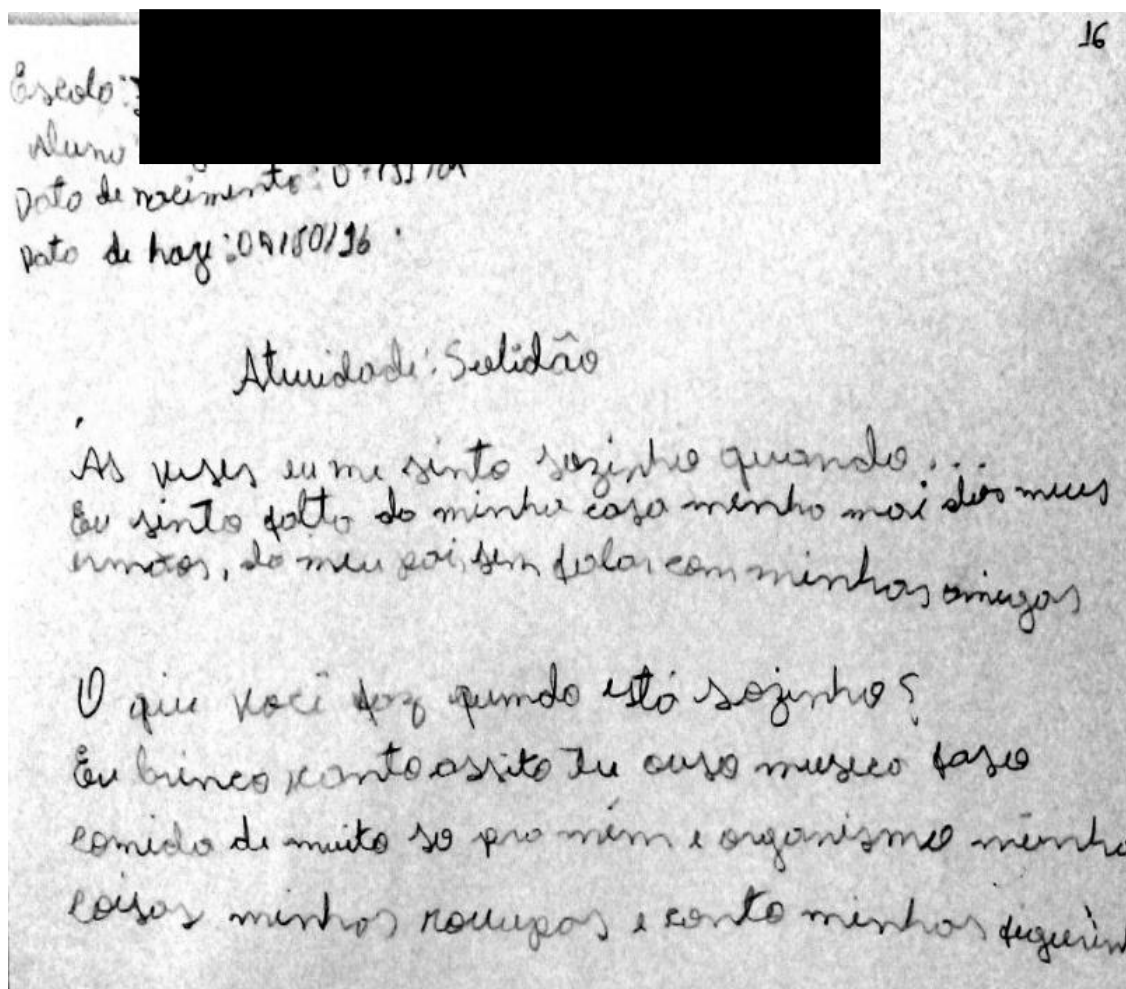 16
Escola:
Aluno
Data de nacimento: 07/11/
Data de hoje: 0
Atividade: Solidão
Ás veses eu me sinto sozinho quando...
Eu sinto falta da minha casa minha mai dos meus
irmãos, do meu pai, sem falar com minhas amigas
O que você faz quando está sozinho?
Eu brinco, canto assito Tv ouso museca faso
comida de muito so pra mim e organismo minha
coisas minhas roupas e conto minhas figurin